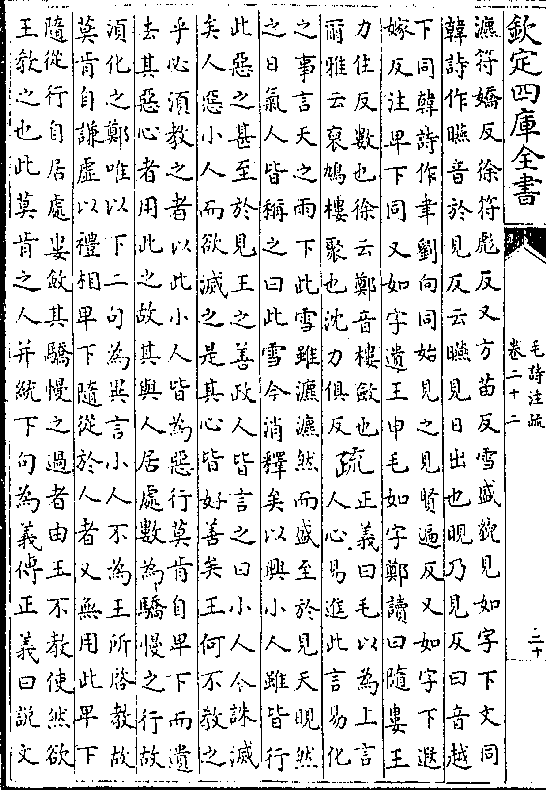 欽定四庫全書
毛詩注疏
卷二十二
二十
瀌符嬌反徐符彪反又方苗反雪盛貌見如字下文同
韓詩作㬗音於見反云㬗見日出也晛乃見反曰音越
下同韓詩作聿劉向同始見之見賢遍反又如字下遐
嫁反注卑下同又如字遺王申毛如字鄭讀曰隨婁王
力住反數也徐云鄭音樓斂也爾雅云裒鳩樓聚也沈力俱反
疏
正義曰毛以為上言人心易進此言易化
之事言天之雨下此雪雖瀌瀌然而盛至於見天晛然
之日氣人皆稱之曰此雪今消釋矣以興小人雖皆行
此惡之甚至於見王之善政人皆言之曰小人今誅滅
矣人惡小人而欲滅之是其心皆好善矣王何不教之
乎必須教之者以此小人皆為惡行莫肯自卑下而遺
去其惡心者用此之故其與人居處數為驕慢之行故
須化之鄭唯以下二句為異言小人不為王所啓教故
莫肯自謙虛以禮相卑下隨從於人者又無用此卑下
隨從行自居處婁斂其驕慢之過者由王不教使然欲
王教之也此莫肯之人并統下句為義傳正義曰說文